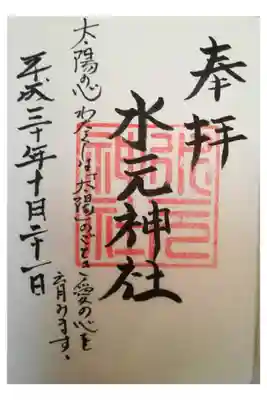 奉拝
水元神社
太陽の心 わたくしは、太陽のごとき愛の心を
育みます。
平成三十年十月二十一日